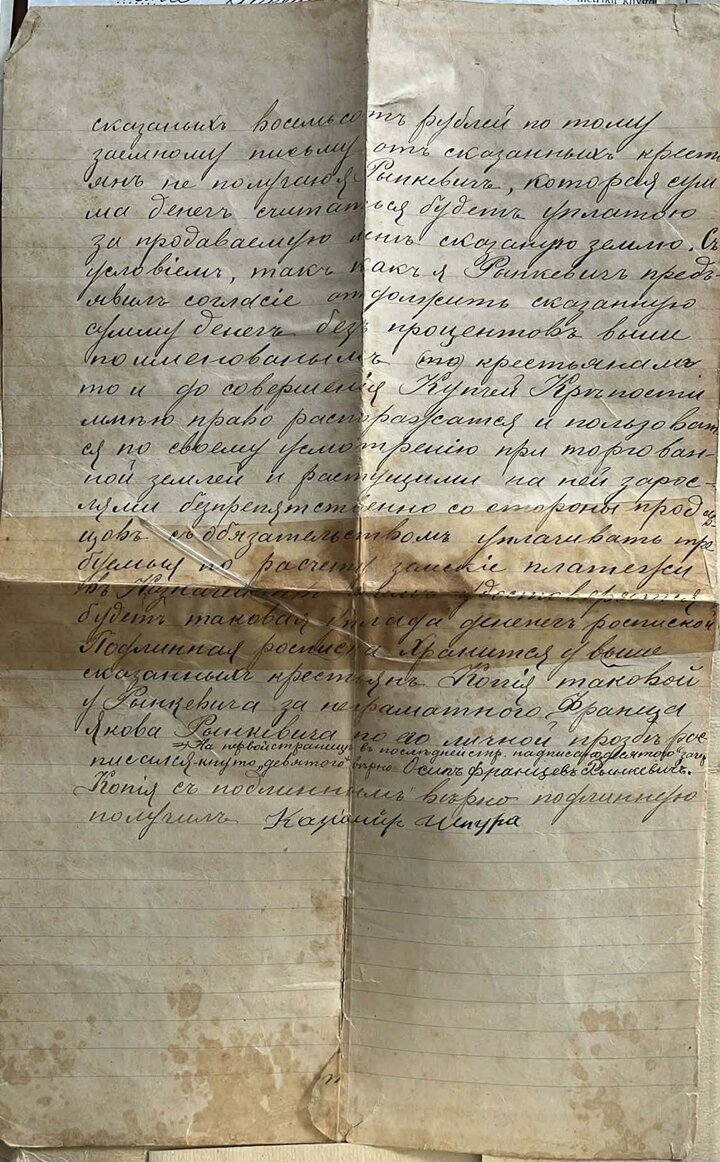 сказаныхъ восемьсотъ рублей по тому
заемному письму отъ сказанныхъ крестъ
янъ не получаю я Рынкевичъ, которая сум
ма денегъ считаться будетъ уплатою
за продаваемую мнѣ сказаную землю. Съ
условіемъ, такъ какъ я Рынкевичъ предъ-
явилъ согласіе отдолжить сказанную
сумму денегъ безъ процентовъ выше
поименованымъ (то) крестьянамъ
то и до совершенія Купчей Крѣпости
имѣю право распоражатся и пользоват
ся по своему усмотренію при торгован-
ной землей и растущими на ней зарос-
лями безпрепятственно со стороны прода
цовъ съ обязательствомъ уплачивать тре
буемыя по расчету земскіе платежи
въ Казначейство
будетъ таковая уплада денегъ роспиской
Подлинная росписка хранится у выше
сказанныхъ крестьянъ Копія таковой
у Рынкевича за неграматного Франца
Якова Рынкевича по его личной прозбѣ рос
На первой страницѣ въ послѣдней стр. надписано
писался „девятого“ вѣрно Осипъ Францевъ Рынкевичъ.
Копія съ подлиннымъ вѣрно подлинную
получилъ Казимір Шпура